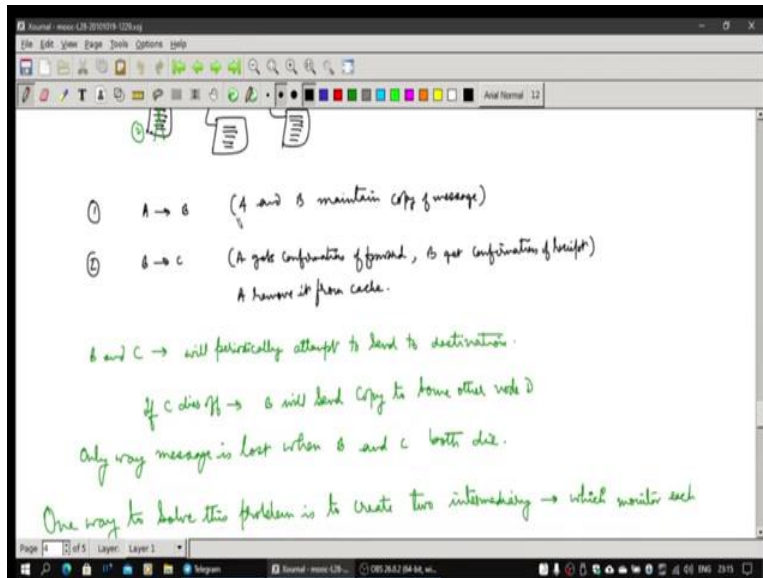 Xournal - mooc-L28-20101019-1229.xoj
File Edit View Page Tools Options Help
T Arial Normal 12
① A → B (A and B maintain copy of message)
② B → C (A gets confirmation of forward, B get confirmation of receipt)
A remove it from cache.
B and C → will periodically attempt to send to destination.
If C dies off → B will send copy to some other node D
Only way message is lost when B and C both die.
One way to solve this problem is to create two intermediary → which monitor each
Page 4 of 5 Layer: Layer 1
Telegram Xournal - mooc-L28-... OBS 26.0.2 (64-bit, wi... ENG 23:15